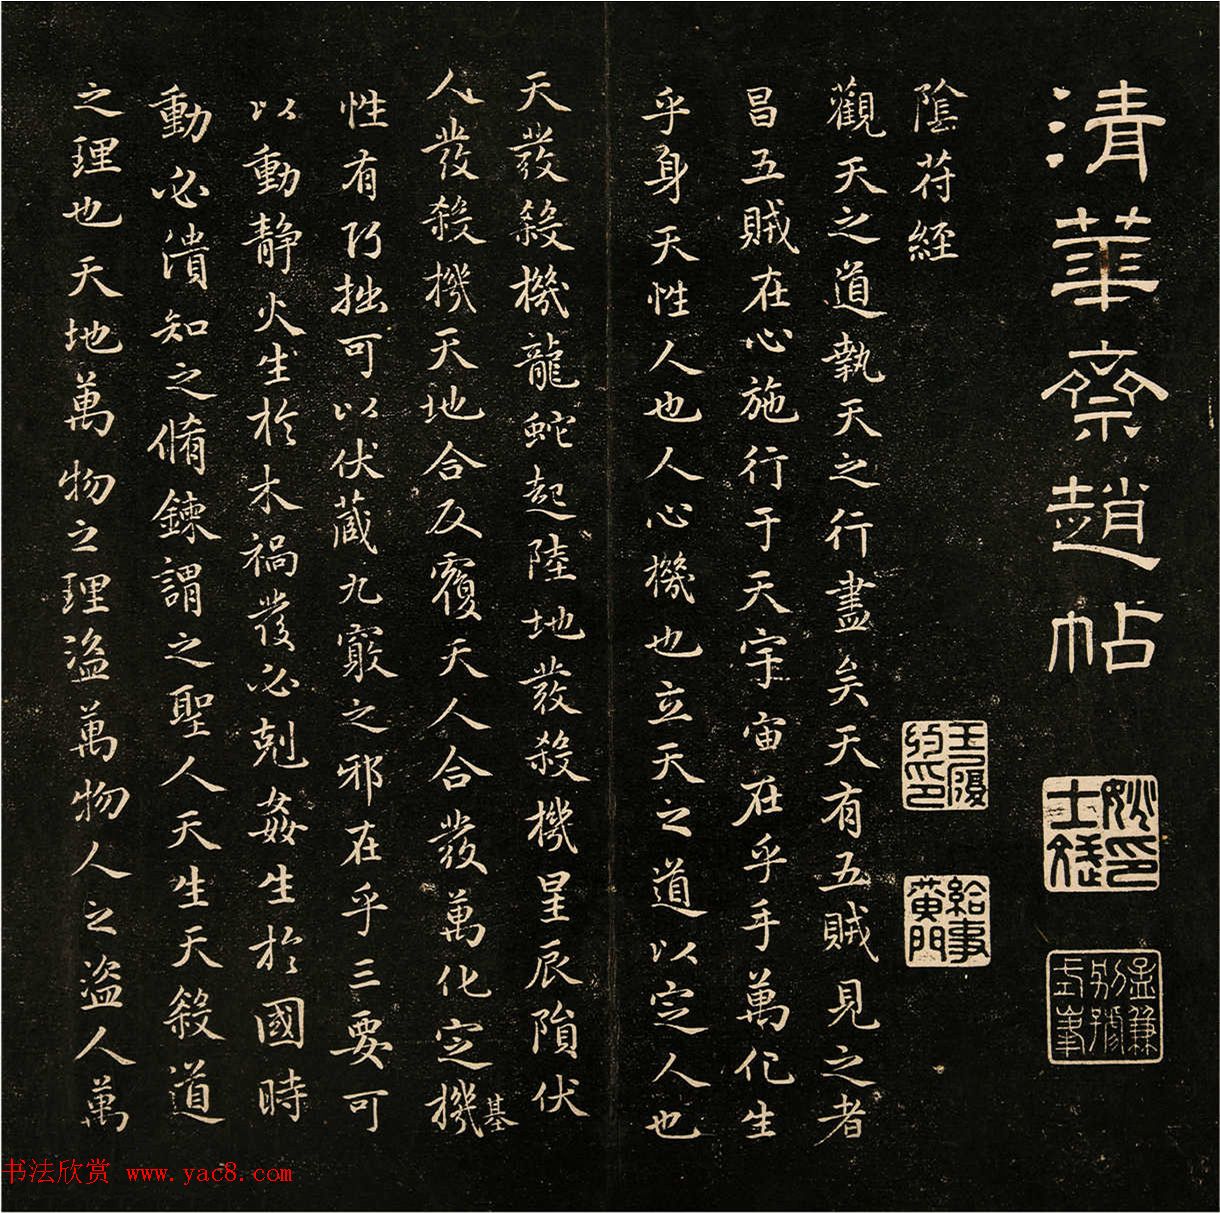 清華齋趙帖
陰苻経
觀天之道執天之行盡矣天有五賊見之者
昌五賊在心施行于天宇宙在乎手萬化生
乎身天性人也人心機也立天之道以定人也
天發殺機龍蛇起陸地發殺機星辰隕伏
人發殺機天地合反覆天人合發萬化定機
基
性有巧拙可以伏藏九竅之邪在乎三要可
以動静火生於木禍發必剋姦生於國時
動必潰知之脩鍊謂之聖人天生天殺道
之理也天地萬物之理盜萬物人之盜人萬
給事黄門
书法欣赏 www.yac8.com